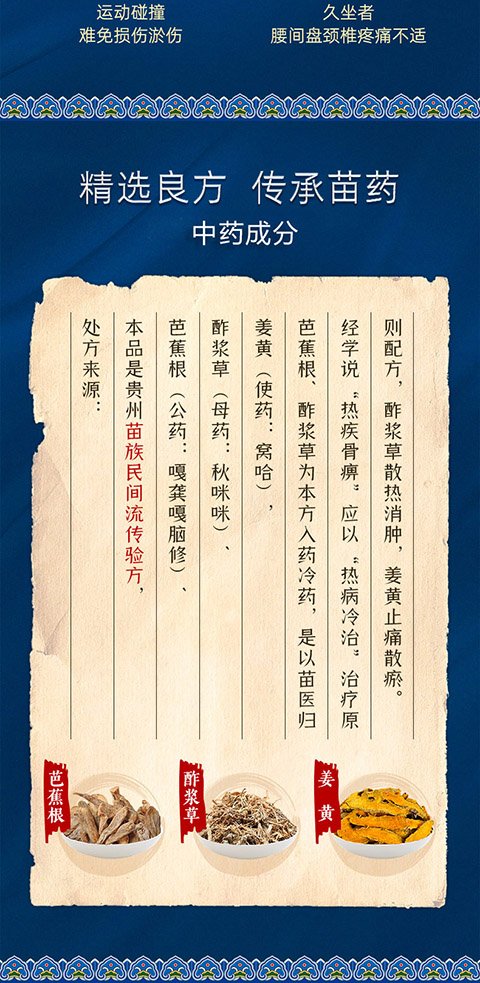 运动碰撞
难免损伤淤伤
久坐者
腰间盘颈椎疼痛不适
精选良方 传承苗药
中药成分
处方来源：
本品是贵州苗族民间流传验方，
芭蕉根（公药：嘎龚嘎脑修）、
酢浆草（母药：秋咪咪）、
姜黄（使药：窝哈），
芭蕉根、酢浆草为本方入药冷药，是以苗医归
经学说“热疾骨痹”应以“热病冷治”治疗原
则配方，酢浆草散热消肿，姜黄止痛散瘀。
芭蕉根
酢浆草
姜黄